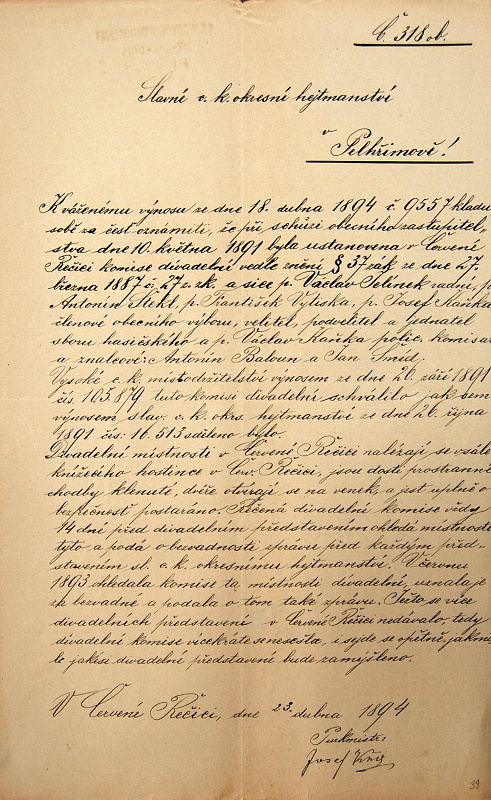 Č. 318 ob.
Slavné c. k. okresní hejtmanství
v
Pelhřimově!
K váženému výnosu ze dne 18. dubna 1894 č. 9557 kladu
sobě za čest oznámiti, že při schůzi obecního zastupitel-
stva dne 10. května 1891 byla ustanovena v Červené
Řečici komise divadelní vedle znění § 37 zák. ze dne 27.
března 1887 č. 27 z. zk. a sice p. Václav Jelinek radní, p.
Antonín Stekl, p. František Vytiska, p. Josef Kaňka
členové obecního výboru, velitel, podvelitel a jednatel
sboru hasičského a p. Václav Kaňka polic. komisar
a znalcové: Antonín Baloun a Jan Šmíd.
Vysoké c. k. místodržitelství výnosem ze dne 26. září 1891
čís. 105.879 tuto komisi divadelní schválilo jak sem
výnosem slav. c. k. okrs. hejtmanství ze dne 26. října
1891 čís: 16.513 sděleno bylo.
Divadelní místnosti v Červené Řečici nalézají se v sále
knížecího hostince v Čer. Řečici, jsou dosti prostranné
chodby klenuté, dvéře otvírají se na venek, a jest uplně o
bezpečnost postaráno. Řečená divadelní komise vždy
14 dní před divadelním představením ohledá místnosti
tyto a podá o bezvadnosti zprávu před každým před-
stavením sl. c. k. okresnímu hejtmanství. V červnu
1893 ohledala komise ta místnosti divadelní, uznala je
za bezvadné a podala o tom také zprávu. Ježto se více
divadelních představení v Červené Řečici nedávalo, tedy
divadelní komise vícekráte se nesešla, i sejde se opětně, jakmi-
le jakési divadelní představení bude zamýšleno.
V Červené Řečici, dne 23. dubna 1894
Purkmistr:
Josef
39